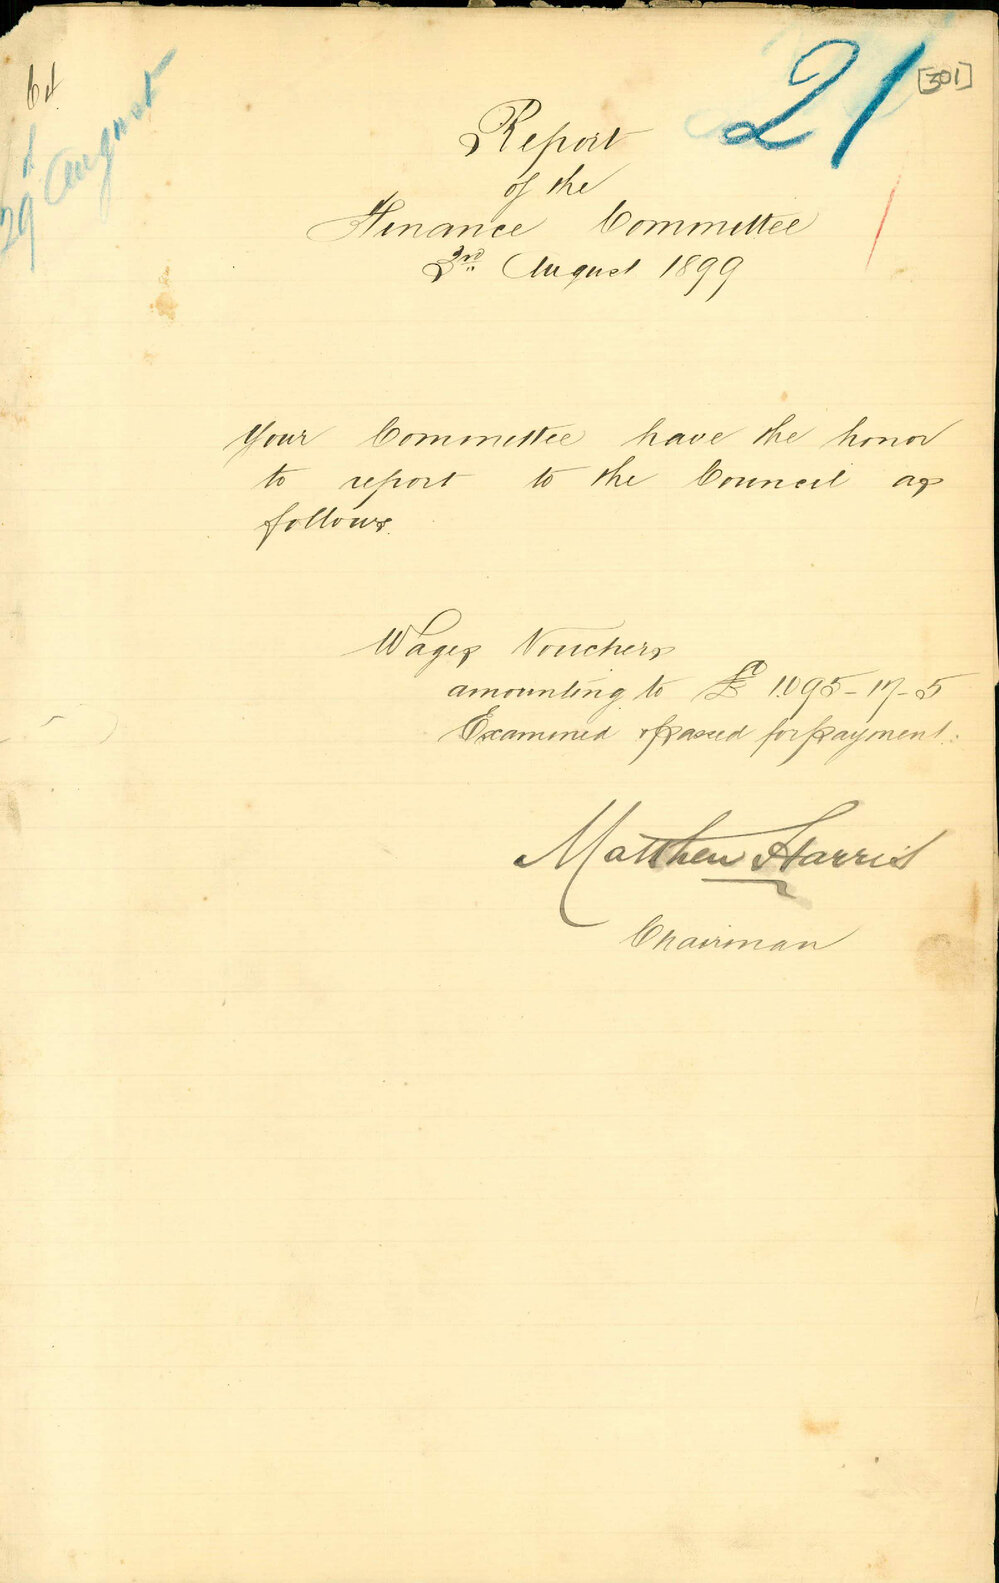 21
[301]
Report
of the
Finance Committee
2nd August 1899
Your Committee have the honor
to report to the Council as
follows.
Wages Vouchers
amounting to £1.095-17-5
Examined & passed for payment.
Matthew Harris
Chairman
29 August